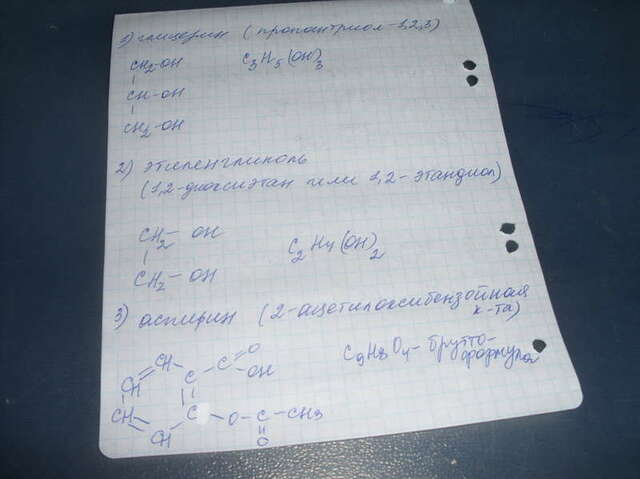 1) глицерин (пропантриол-1,2,3)
CH2-OH C3H5(OH)3
CH-OH
CH2-OH
2) этиленгликоль
(1,2-диоксиэтан или 1,2-этандиол)
CH2- OH
C2H4(OH)2
CH2-OH
3) аспирин (2-ацетилоксибензойная
к-та)
C9H8O4 - брутто-
формула
CH=CH C-C=O OH
CH C-O-C-CH3
CH O